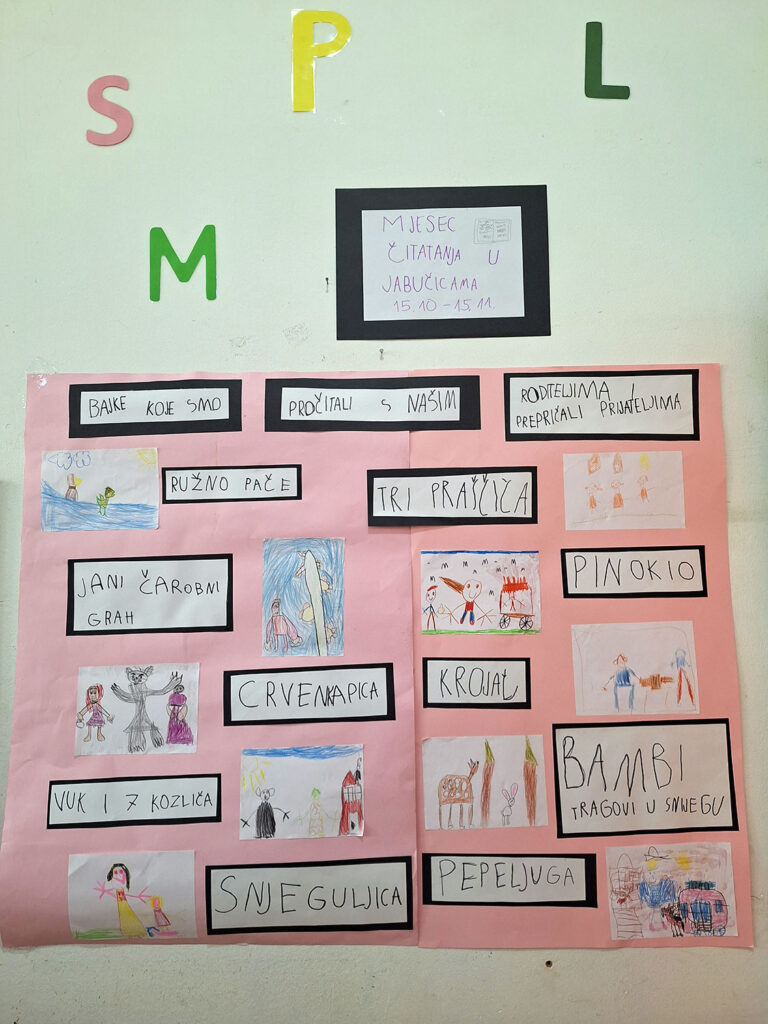 S
P
L
M
MJESEC
ČITATANJA U
JABUČICAMA
15.10 - 15.11.
BAJKE KOJE SMO
PROČITALI S NAŠIM
RODITELJIMA I
PREPRIČALI PRIJATELJIMA
RUŽNO PAČE
TRI PRAŠČIČA
JANI ČAROBNI
GRAH
PINOKIO
CRVENKAPICA
KROJAČ
VUK I 7 KOZLIČA
BAMBI
TRAGOVI U SNIJEGU
SNJEGULJICA
PEPELJUGA